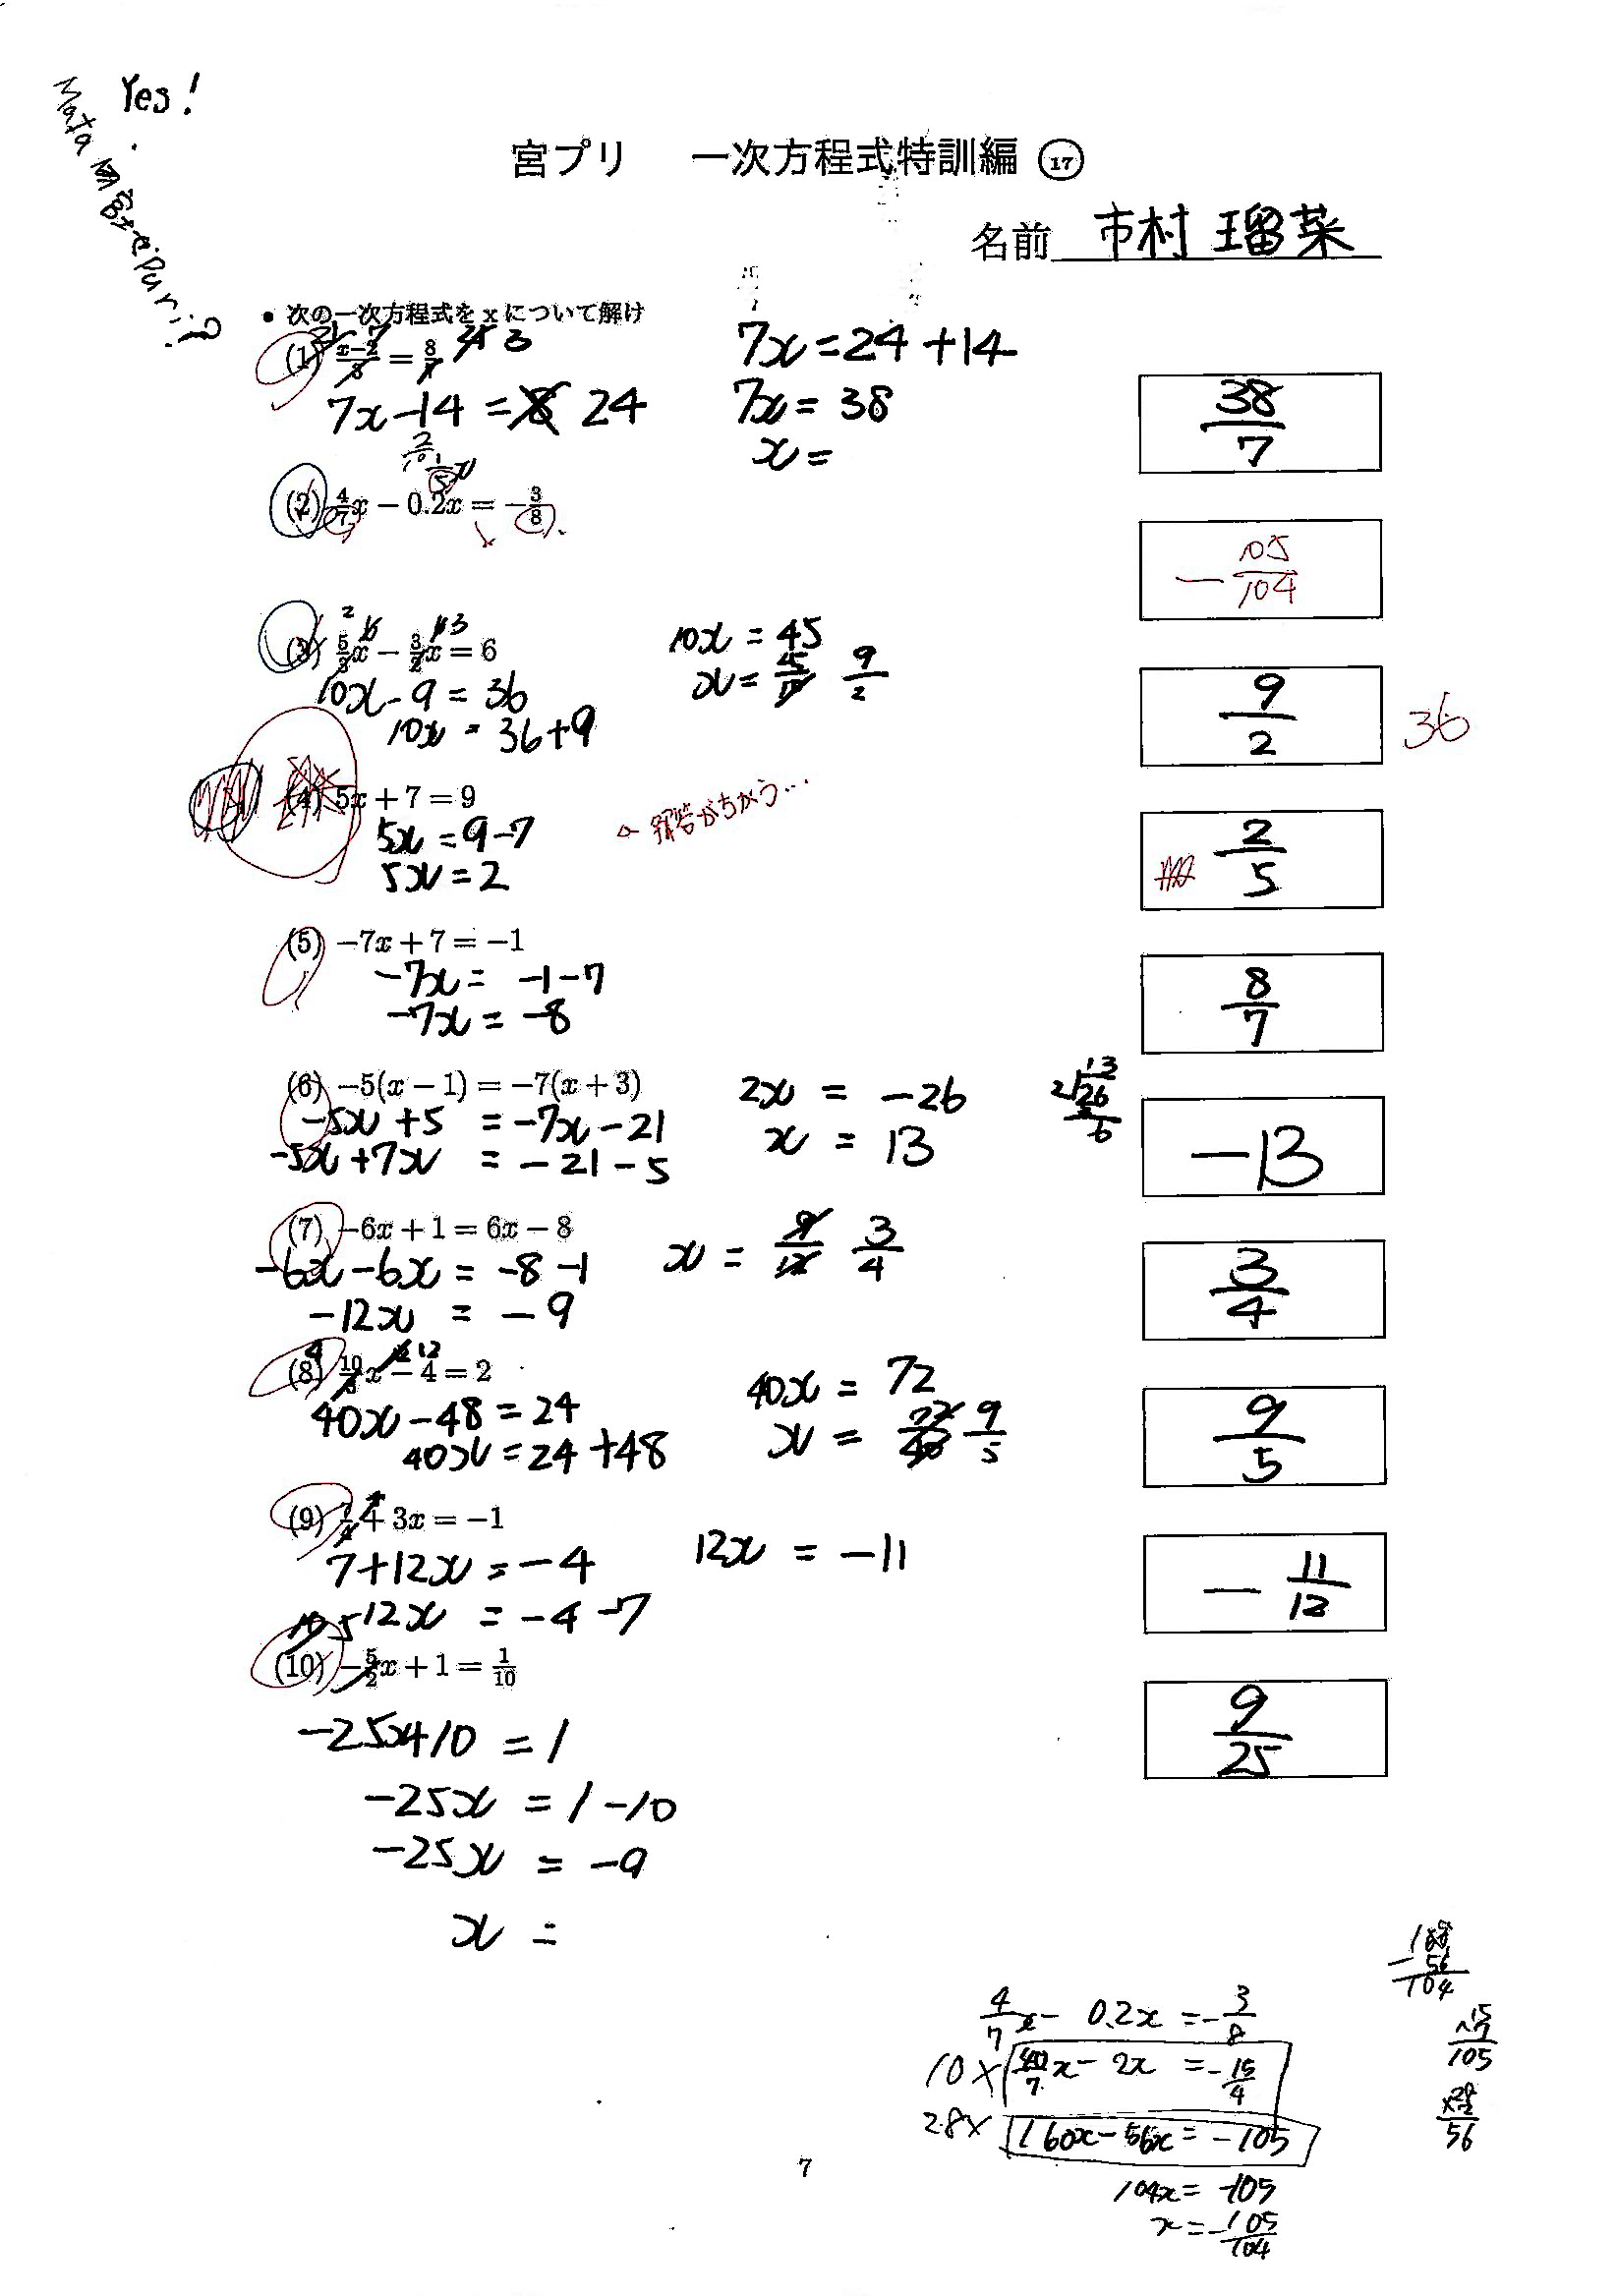 Yes!
Mata
宮プリ 一次方程式特訓編 ⑰
名前 市村 瑠菜
• 次の一次方程式を x について解け
(1) \frac{x-2}{3} = \frac{8}{7}
7x-14 = 24
7x = 24 + 14
7x = 38
x =
\frac{38}{7}
(2) \frac{4}{7}x − 0.2x = −\frac{3}{8}
− \frac{105}{104}
(3) \frac{5}{3}x − \frac{3}{2}x = 6
10x - 9 = 36
10x = 36+9
10x = 45
x = \frac{45}{10} \frac{9}{2}
\frac{9}{2}
36
(4) 5x + 7 = 9
5x = 9-7
5x = 2
解答がちがう…
\frac{2}{5}
(5) −7x + 7 = −1
-7x = -1-7
-7x = -8
\frac{8}{7}
(6) −5(x − 1) = −7(x + 3)
-5x+5 = -7x-21
-5x+7x = -21-5
2x = -26
x = 13
13
2√26
6
-13
(7) −6x + 1 = 6x − 8
-6x-6x = -8-1
-12x = -9
x = \frac{9}{12} \frac{3}{4}
\frac{3}{4}
(8) \frac{10}{3}x − 4 = 2
40x-48 = 24
40x = 24+48
40x = 72
x = \frac{72}{40} \frac{9}{5}
\frac{9}{5}
(9) \frac{7}{4} + 3x = −1
7+12x = -4
12x = -4-7
12x = -11
- \frac{11}{12}
(10) −\frac{5}{2}x + 1 = \frac{1}{10}
-25x+10 = 1
-25x = 1-10
-25x = -9
x =
\frac{9}{25}
\frac{4}{7}x - 0.2x = -\frac{3}{8}
10× \frac{40}{7}x - 2x = -\frac{15}{4}
28× 160x-56x = -105
104x = -105
x = -\frac{105}{104}
-56
104
15
×7
105
56
7